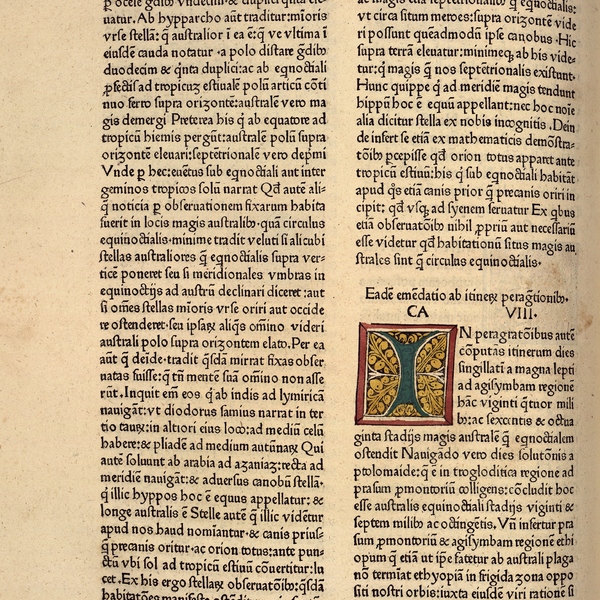 uatur. Ab hypparcho aūt traditur: mīoris
vrse stella: q̄ australior ī ea ē: q̄ ve vltima ī
eiusdē cauda notatur · a polo distare g̃dibꝫ
duodecim & q̄nta duplici: ac ab eqnoctiali
ꝓfectis ad tropicuꝫ estiualē polū articū cōti
nuo ferro supra orizontē: australē vero ma
gis demergi Preterea his q̄ ab equatore ad
tropicū hiemis pergūt: australē polū supra
orizontē eleuari: septētrionalē vero depmi
Vnde ꝑ hec: euētus sub eqnoctiali aut inter
geminos tropicos solū narrat Qd̄ autē ali-
q̄ noticia ꝑ obseruationem fixarum habita
fuerit in locis magis australibꝫ · quā circulus
equinoctialis · minime tradit veluti si alicubi
stellas australiores q̄ eqnoctialis supra ver-
ticē poneret seu si meridionales vmbras in
equinoctijs ad austrū declinari diceret: aut
si om̄es stellas mīoris vrse oriri aut occide
re ostenderet · seu ipsaꝝ aliqs om̄ino videri
australi polo supra orizontem elato. Per ea
aūt q̄ deīde · tradit qsdā mirrat fixas obser
uatas fuisse: q̄ tn̄ mente suā om̄ino non asse
rūt. Inquit em̄ eos q̄ ab indis ad lymiricā
nauigāt: vt diodorus samius narrat in ter
tio tauꝝ: in altiori eius loco: ad mediū celū
habere: & pliadē ad medium autūnaꝝ Qui
autē soluunt ab arabia ad azaniaꝫ: recta ad
meridiē nauigāt: & aduersus canobū stellā ·
q̄ illic hyppos hoc ē equus appellatur: &
longe australis ē Stelle autē q̄ illic vidētur
apud nos haud nomiantur · & canis prius-
q̄ precanis oritur · ac orion totus: ante pun-
ctū vbi sol ad tropicū estiuū cōuertitur: lu
cet. Ex his ergo stellaꝝ obseruatōibꝫ: qsdā
vt circa situm meroes: supra orizontē vide
ri possunt quēadmodū ipse canobus · Hic
supra terrā eleuatur: minimeqꝫ ab his vide-
tur: q̄ magis q̄ nos septētrionalis existunt ·
Hunc quippe q̄ ad meridiē magis tendunt
hippū hoc ē equū appellant: nec hoc noīe
alia dicitur stella ex nobis incognitis · Dein
de insert se etiā ex mathematicis demōstra-
tōibꝫ ꝑcepisse qd̄ orion totus apparet ante
tropicū estiuū: his q̄ sub eqnoctiali habitāt
apud qs etiā canis prior q̄ precanis oriri in
cipit: qd̄ vsqꝫ ad syenem seruatur Ex qbus
etiā obseruatōibꝫ nihil ꝓpriū aut necessariū
esse videtur qd̄ habitationū situs magis au
strales sint q̄ circulus equinoctialis ·
Eadē emēdatio ab itineꝝ peragr̄tionibꝫ ·
CA VIII ·
IN peragratōibus autē
cōputās itinerum dies
singillatī a magna lepti
ad agisymbam regionē
hāc viginti qtuor mili
bꝫ: ac sexcentis & octua
ginta stadijs magis australē q̄ eqnoctialem
ostendit Nauigādo vero dies solutonis a
ptolomaide: q̄ ē in trogloditica regione ad
prasum ꝓmontoriū colligens: cōcludit hoc
esse australis equinoctiali stadijs viginti &
septem milibꝫ ac octingētis. Vn̄ insertur pra
sum ꝓmontoriū & agisymbam regionē ethi
opum q̄ etiā ut ip̄e fatetur ab australi plaga
nō termīat ethyopiā in frigida zona oppo
siti nostri orbis: iuxta eiusdē viri ratione si